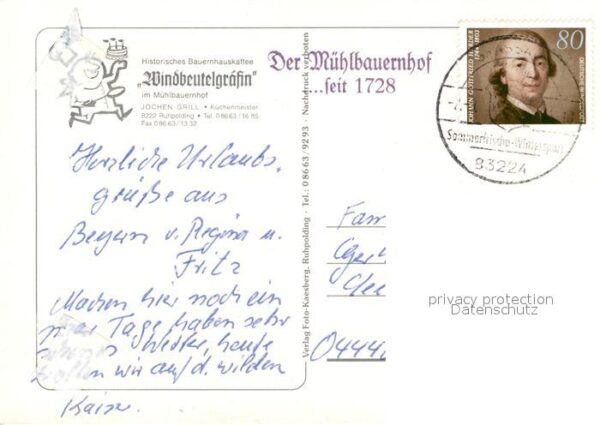 Historisches Bauernhauskaffee
„Windbeutelgräfin"
im Mühlbauernhof
JOCHEN GRILL • Küchenmeister
8222 Ruhpolding • Tel. 0 86 63/16 85
Fax 0 86 63/13 32
Der Mühlbauernhof
...seit 1728
80
JOHANN GOTTFRIED HERDER
1744-1803
DEUTSCHE BUNDESPOST
Sommerfrische-Wintersport
83224
Herzliche Urlaubs-
grüße aus
Bayern v. Regina u.
Fritz
Machen hier noch ein
paar Tage, haben sehr
Wetter, heute
wollen wir auf d. wilden
Kaiser.
Verlag Foto-Kaesberg, Ruhpolding - Tel.: 08663/9293 - Nachdruck verboten
Fam
Ger
0444
privacy protection
Datenschutz